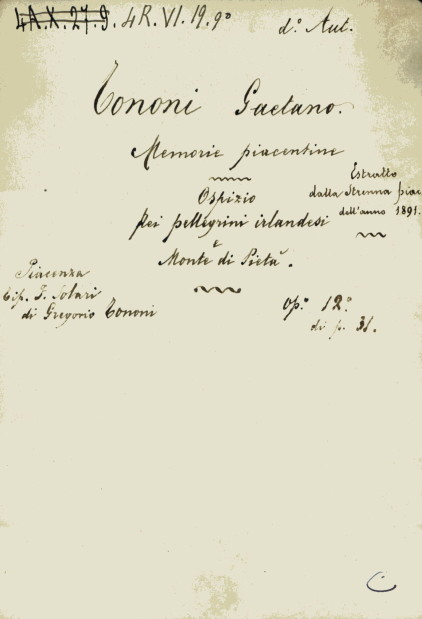 4A.X.27.9. 4R.VI.19.9º d.º Aut.
Tononi Gaetano.
Memorie piacentine
Estratto
dalla Strenna piac
dell'anno 1891.
Ospizio
pei pellegrini irlandesi
e
Monte di Pietà.
Piacenza
Tip. F. Solari
di Gregorio Tononi
op.º 12º
di p. 31.